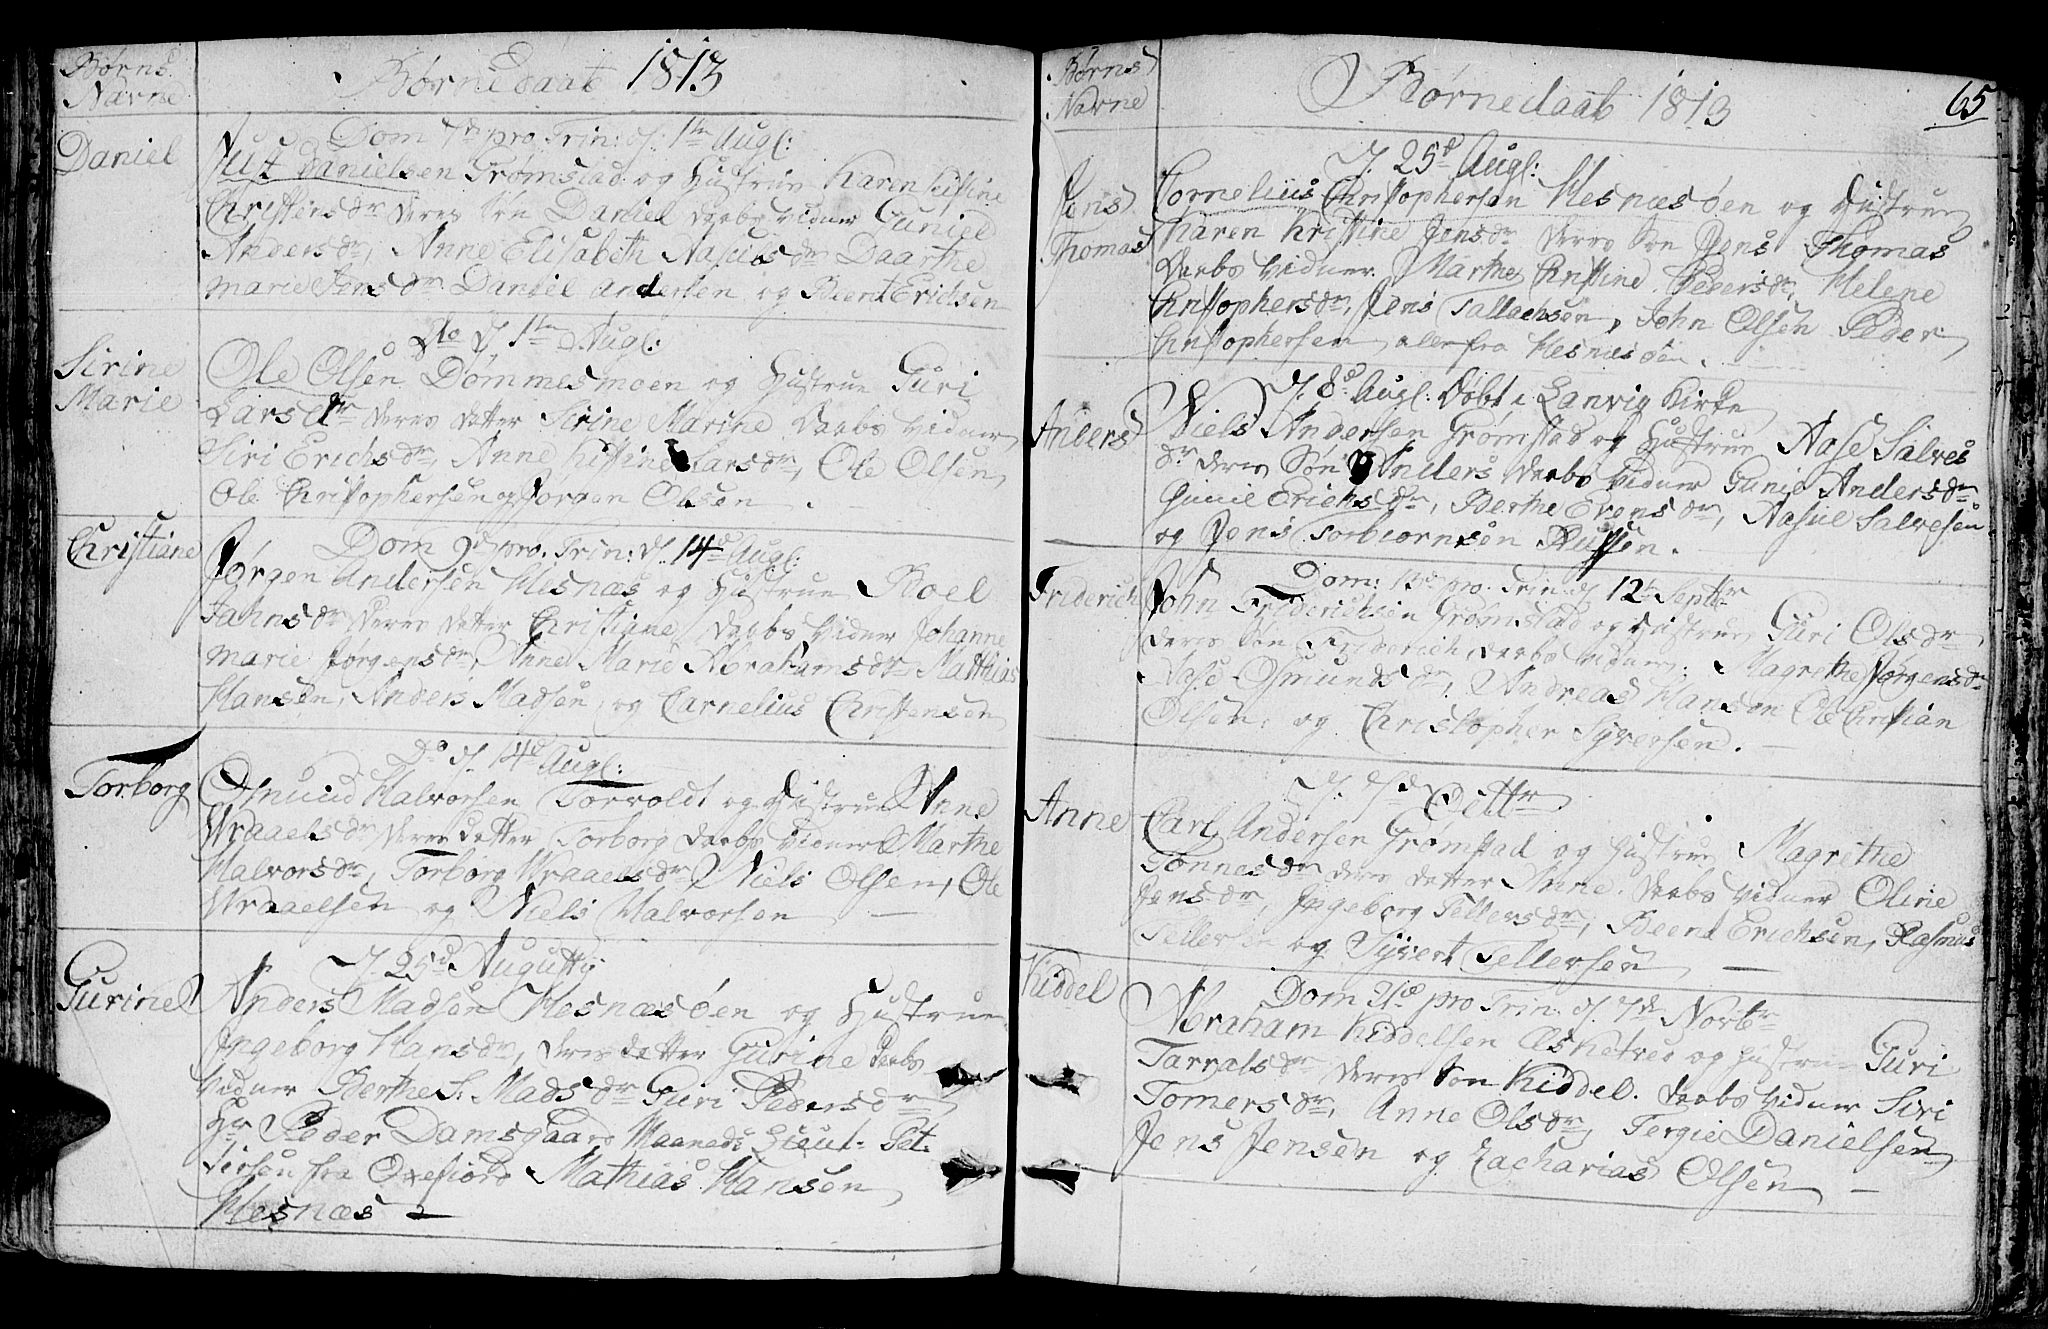 Børns
Navne
Børnedaab 1813
Daniel
Dom 7de pro Trin: d. 1te Augl:
Just Danielsen Grømstad og Hustrue Karen Kistine
Christensdr deres Søn Daniel daabs vidner Guniel
Andersdr, Anne Elisabeth Nasuls dr Daarthe
marie Jensdr Daniel andersen og Bient Erichsen
Sirine
Marie
Do d. 1te Augl:
Ole Olsen Dommesmoen og Hustrue Guri
Larsdr deres datter Sirine Marine daabs vidner
Siri Erichsdr, Anne Kistine Larsdr, Ole Olsen,
Ole Christophersen og Jørgen Olsen.
Christiane
Dom 9de pro. Trin: d. 14de Augl:
Jørgen Andersen Hesnæs og Hustrue Roel
Jahnsdr deres datter Christiane daabs vidner Johanne
marie Jørgensdr, Anne Marie Abrahamsdr Matthias
Hansen, Anders Madsen, og Carnelius Christensen
Torborg
Do d. 14de Augl:
Osmund Halvorsen Torvoldt og Hustrue Anne
Wraaelsdr deres datter Torborg daabs vidner Marthe
Halvorsdr, Torborg Wraaelsdr Niels Olsen, Ole
Wraaelsen og Niels Halvorsen —
Gurine
d. 25de Augusty
Anders Madsen Hesnæsøen og Hustrue
Ingeborg Hansdr, deres datter Gurine daabs
vidner Berthe S. Madsdr Guri Pedersdr
Hr Peder Damsgaard Maaneds Lieut. Pet
tersøn fra Oxefiord Mathias Hansen
Hesnæs —
Børns
Navne
Børnedaab 1813
65
Jens
Thomas
d. 25de Augl:
Cornelius Christophersen Hesnæsøen og Hustrue
Karen Kristine Jensdr deres Søn Jens Thomas
daabs vidner. Marthe Christine Pedersdr, Helene
Christophersdr, Jens Tallachsen, John Olsen Peder
Christophersen, alle fra Hesnæsøen.
Anders
d. 8de Augl: Døbt i Landvig Kirke
Niels Andersen Grømstad og Hustrue Aase Salves
dr deres Søn Anders daabs vidner Gunie Andersdr
Gunie Erichsdr, Berthe Evensdr, Aasul Salvesen
og Jens Torbiørnsen
Friderich
Dom: 13de pro. Trin d. 12te Septbr
John Friderichsen Grømstad og Hustrue Guri Olsdr
deres Søn Friderich daabs vidner. Magrethe Jørgensdr
Aase Osmundsdr, Andreas Hansen Ole Christian
Olsen, og Christopher Syversen. —
Anne
d. 7de Octbr
Carl Andersen Grømstad og Hustrue Magrethe
Tønnesdr deres datter Anne. daabs vidner Olene
Jensdr, Ingeborg Tellersdr, Beent Erichsen, Rasmus
Tellersen og Syvert Tellersen —
Kiddel
Dom 21de pro Trin d. 7de Novbr
Abraham Kiddelsen Esketved og Hustrue Guri
Tarralsdr deres Søn Kiddel. daabs vidner Siri
Tomersdr, Anne Olsdr, Tergie Danielsen
Jens Jensen og Zacharias Olsen —